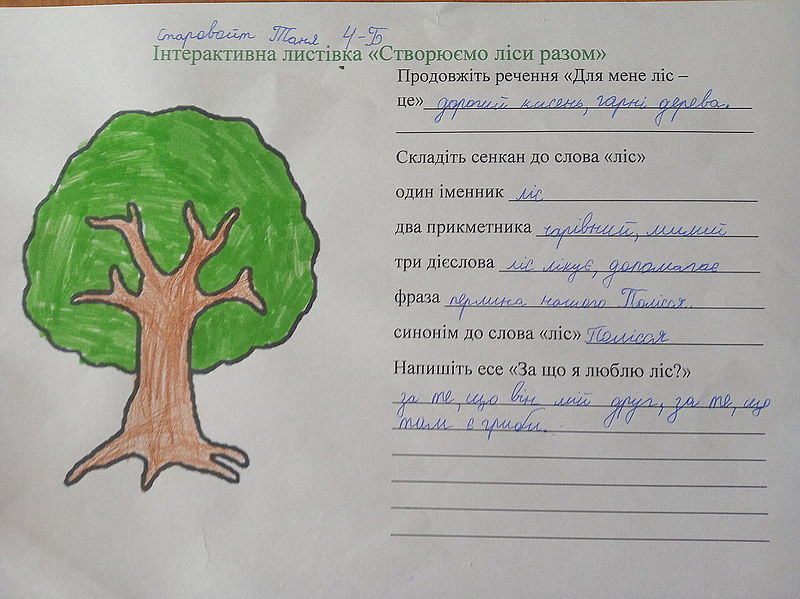 Старовойт Таня 4-Б
Інтерактивна листівка «Створюємо ліси разом»
Продовжіть речення «Для мене ліс –
це» дорогий кисень, гарні дерева.
Складіть сенкан до слова «ліс»
один іменник ліс
два прикметника чарівний, милий
три дієслова ліс лікує, допомагає
фраза перлина нашого Полісся.
синонім до слова «ліс» Полісся
Напишіть есе «За що я люблю ліс?»
за те, що він мій друг, за те, що
там є гриби.